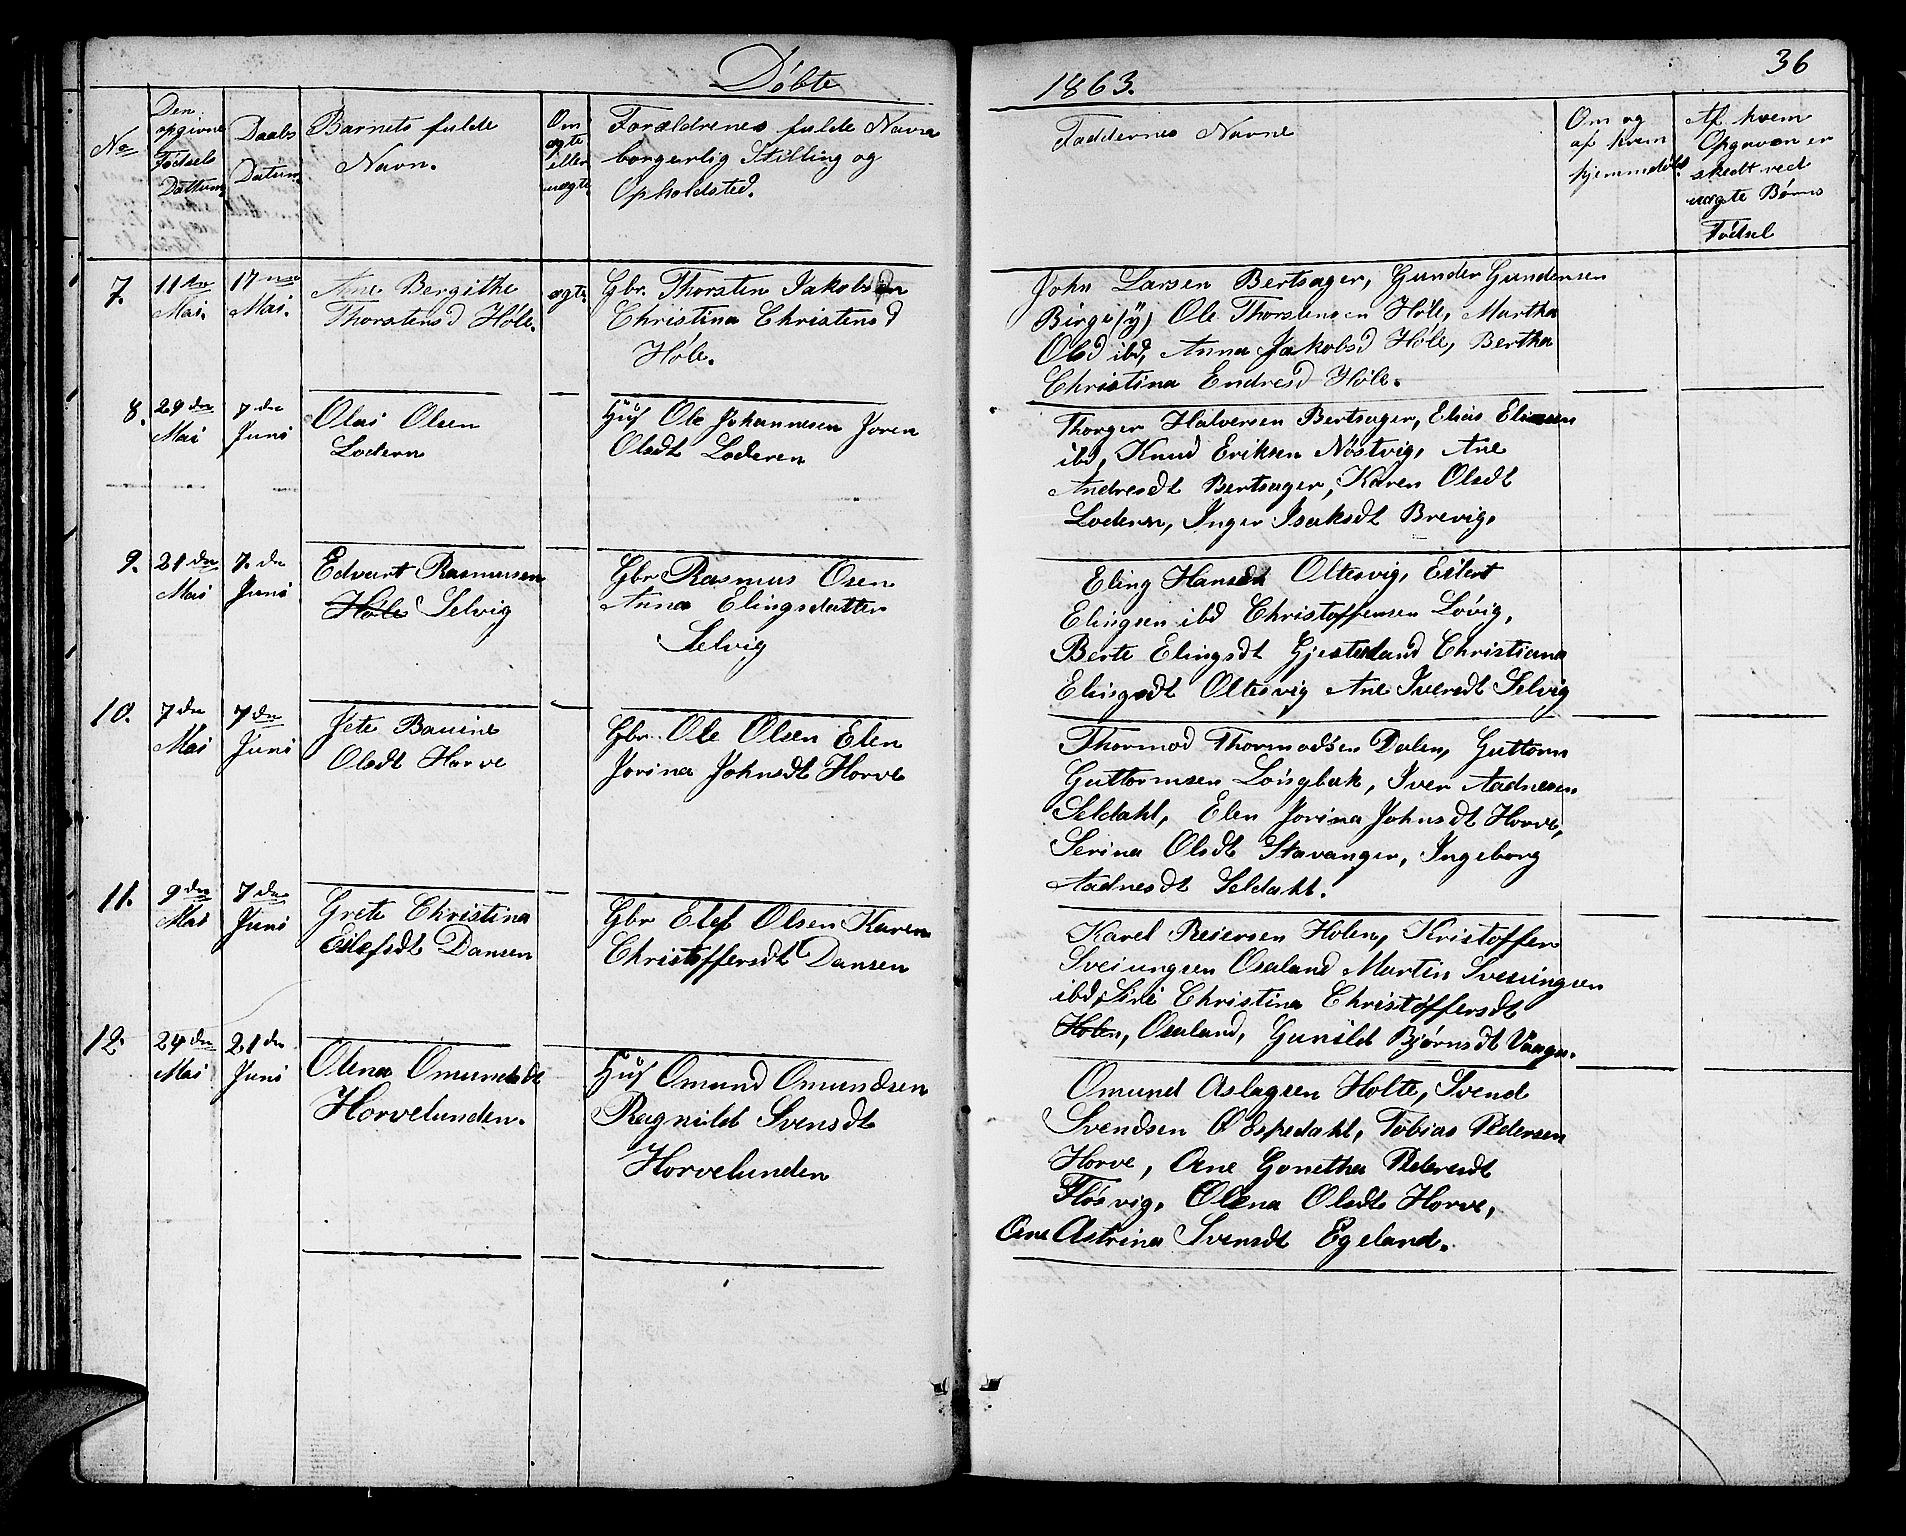 Döbte
1863.
36
No
Den
opgivne
Födsels
Dattum
Daabs
Datum
Barnets fulde
Navn.
Om
ægte
eller
uægte
Forældrenes fulde Navn
borgerlig Stilling og
Opholdsted.
Faddernes Navne
Om og
af hvem
hjemmedöbt.
Af hvem
Opgaven er
skedt ved
uægte Börns
Födsel
7.
11te
Mai.
17nde
Mai.
Ane Bergithe
Thorstensd Höle.
ægte
Gbr. Thorsten Jakobsen
Christina Christensd
Höle.
John Larsen Bertsager, Gunder Gundersen
Birge(y) Ole Thorstensen Höle, Martha
Olsd ibd, Anna Jakobsd Höle, Bertha
Christina Endresd Höle.
8.
29de
Mai
7de
Juni
Olai Olsen
Lodern
Huf Ole Johannesen Joren
Olsdt Loderen
Thorger Halversen Bertsager, Elias Eliasen
ibd, Knud Eriksen Nöstvig, Ane
Andresdt Bertsager, Karen Olsdt
Lodern, Inger Isaksdt Brevig.
9.
21de
Mai
7.de
Juni
Edvart Rasmussen
Höle Selvig
Gbr Rasmus Osen
Anna Elingsdatter
Selvig
Eling Hansen Oltesvig, Eilert
Elingsen ibd Christoffersen Lövig,
Berte Elingsdt Gjesteland Christiana
Elingsdt Oltesvig Ane Iversdt Selvig
10.
7de
Mai
7de
Juni
Jete Bauine
Olsdt Horve
Gbr. Ole Olsen Elen
Jorina Johnsdt Horve
Thormod Thormodsen Dalen, Guttorm
Guttormsen Löngbak, Iver Aadnesen
Seldahl, Elen Jorina Johnsdt Horve,
Serina Olsdt Stavanger, Ingeborg
Aadnesdt Seldahl.
11.
9de
Mai
7de
Juni
Grete Christina
Eilefsdt Dansen
Gbr Elef Olsen Karen
Christoffersdt Dansen
Karel Reiersen Holen, Kristoffer
Sveiungsen Osaland Martin Sveiungsen
ibd, Siri Christina Christoffersdt
Holen, Osaland, Gunild Bjørnsdt Vaage.
12.
24de
Mai
21de
Juni
Olena Omundsdt
Horvelunden.
Huf Omund Omundsen
Ragnild Svensdt
Horvelunden
Omund Aslagsen Holte, Svend
Svendsen Espedahl, Tobias Pedersen
Horve, Ane Gonetha Pedersdt
Flösvig, Olena Olsdt Horve,
Ane Astrina Svensdt Egeland.